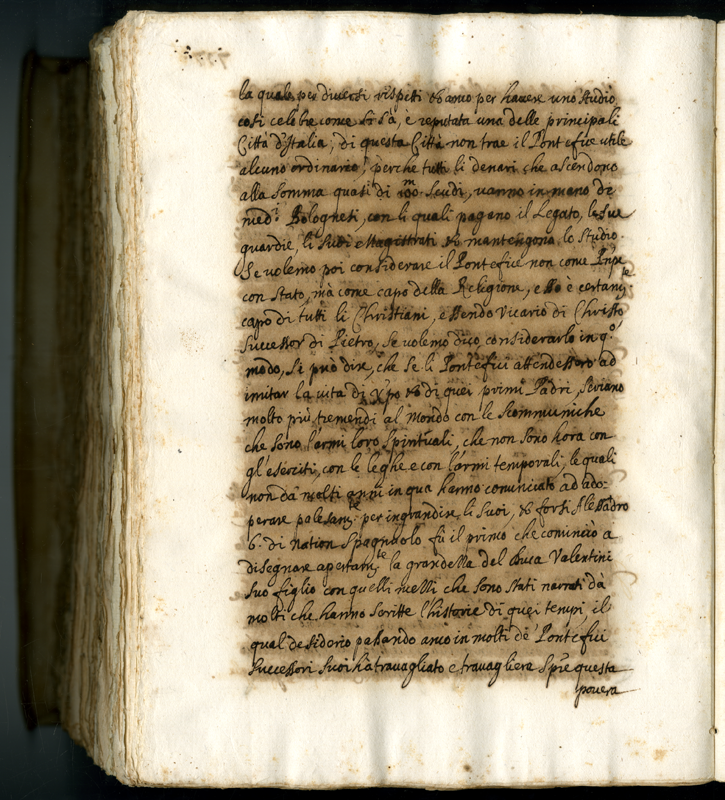 la quale per diversi rispetti et anco per havere uno studio
così celebre come si sà, è reputata una delle principali
Città d'Italia; di questa Città non trae il Pontefice utile
alcuno ordinario, perche tutti li denari che ascendono
alla somma quasi di 100.m scudi, vanno in mano de
med.i Bolognesi, con li quali pagano il Legato, le sue
guardie, li suoi Magistrati et mantengono lo studio.
Se volemo poi considerare il Pontefice non come Pnpe
con stato, mà come capo della Religione, esso è certam.te
capo di tutti li Christiani, essendo Vicario di Christo
successor di Pietro, se volemo dico considerarlo in q.o
modo, si può dire, che se li Pontefici attendessero ad
imitar la vita di Xpo et di quei primi Padri, seriano
molto più tremendi al mondo con le scommuniche
che sono l'armi loro spirituali, che non sono hora con
gl'eserciti, con le leghe e con l'armi temporali, le quali
non da molti anni in qua hanno cominciato ad ado:
perare palesam.te per ingrandire li suoi, et forsi Alessandro
6.o di nation Spagnuolo fù il primo che cominciò a
disegnare apertam.te la grandezza del Duca Valentini
suo figlio con quelli mezzi che sono stati narrati da
molti che hanno scritte l'historie di quei tempi, il
qual desiderio passando anco in molti de Pontefici
successori suoi hà travagliato e travagliera spie questa
povera